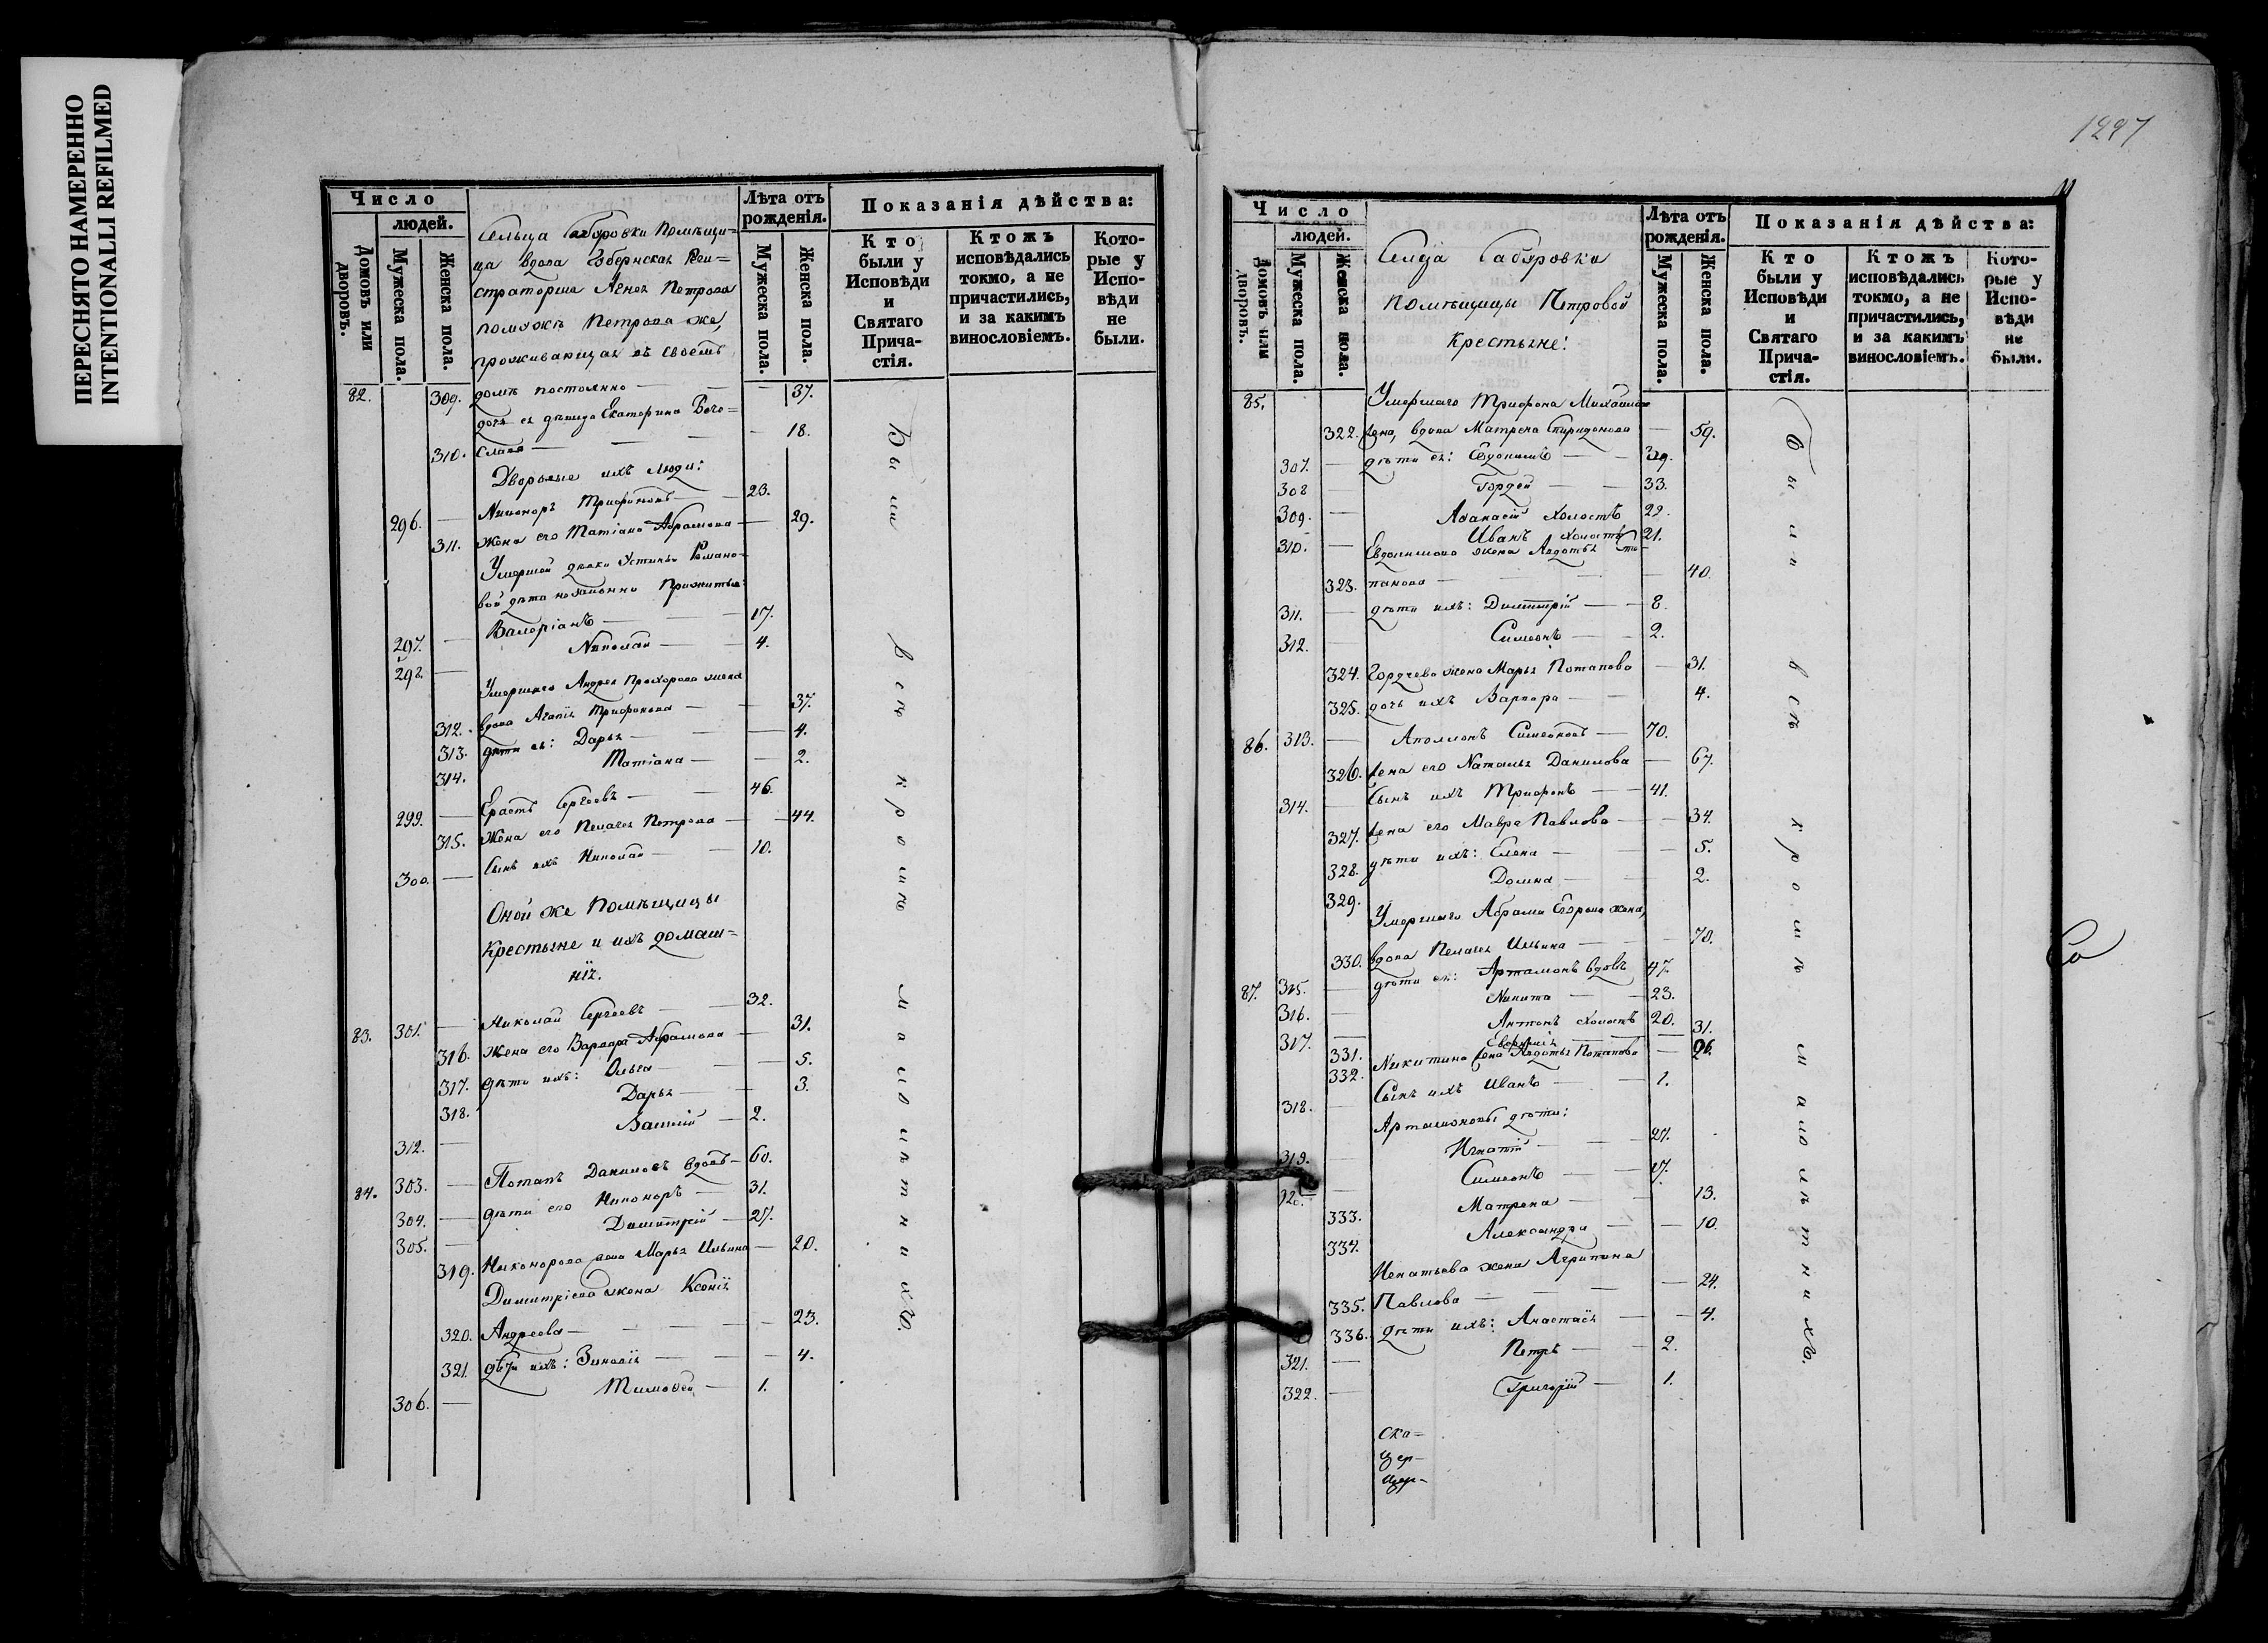 ПЕРЕСНЯТО НАМЕРЕННО
INTENTIONALLI REFILMED
Число
людей.
Домовъ или дворовъ.
Мужеска пола.
Женска пола.
Сельца Помѣщи=
ца вдова Губернская Реги=
страторша Петрова
Петрова же,
проживающая въ своемъ
Лѣта отъ рожденія.
Мужеска пола.
Женска пола.
Показанія дѣйства:
Кто были у Исповѣди и Святаго Прича-стія.
Ктожъ исповѣдались токмо, а не причастились, и за какимъ винословіемъ.
Кото-рые у Испо-вѣди не были.
82. 309. домѣ постоянно — — 37.
дочь ея дѣвица Екатерина Бого=
310. слава — — — 18.
Дворовые ихъ люди:
296. — Никоноръ Трифоновъ — 23.
311. жена его Татіана Абрамова — 29.
Умершей дѣвки Устиньи Романо-
вой дѣти незаконно прижитые:
297. — Валеріанъ — — 17.
298. — Николай — 4.
Умершаго Андрея Прохорова жена
312. вдова Агапія Трифонова — — 37.
313. дѣти ея: Дарья — — 4.
314. Татіана — — 2.
299. — Ерастъ Сергеевъ — — 46.
315. Жена его Пелагея Петрова — — 44.
300. — Сынъ ихъ Николай — — 10.
Оной же Помѣщицы
Крестьяне и ихъ домаш=
нія.
83. 301. — Николай Сергеевъ — 32.
316. Жена его Варвара Абрамова — 31.
317. дѣти ихъ: Ольга — — 5.
318. Дарья — — 3.
312. — Василій — 2.
84. 303. — Потапъ Даниловъ вдовъ — 60.
304. — дѣти его Никоноръ — 31.
305. — Димитрій — 27.
319. Никонорова жена Марья Ильина — 20.
Димитріева жена Ксенія
320. Андреева — — — 23.
321. дѣти ихъ: Зиновія — — 4.
306. — Тимофей — 1.
Были всѣ кромѣ малолѣтнихъ
1297
Число
людей.
Домовъ или дворовъ.
Мужеска пола.
Женска пола.
Сельца
помѣщицы Петровой
Крестьяне:
Лѣта отъ рожденія.
Мужеска пола.
Женска пола.
Показанія дѣйства:
Кто были у Исповѣди и Святаго Прича-стія.
Ктожъ исповѣдались токмо, а не причастились, и за какимъ винословіемъ.
Кото-рые у Испо-вѣди не были.
85. Умершаго Трифона Михайлова
322. жена, вдова Матрена Спиридонова — 59.
307. — дѣти ея: Евдокимъ — — 39.
308 Гордей — — 33.
309. — Аѳанасій холостъ 22.
310. — Иванъ холостъ 21.
Евдокимова жена Авдотья Сте-
323. панова — — — 40.
311. — дѣти ихъ: Димитрій — — 8.
312. Симеонъ — — 2.
324. Гордеева жена Марья Потапова — 31.
325. дочь ихъ Варвара — — 4.
86. 313. — Аполлонъ Симеоновъ — 70.
326. жена его Наталья Данилова — 67.
314. — Сынъ ихъ Трифонъ — — 41.
327. жена его Мавра Павлова — — 34.
328. дѣти ихъ: Елена — — 5.
329. Домна — — 2.
Умершаго Абрама Егорова жена,
330. вдова Пелагея Ильина — — 78.
87. 315. — дѣти ея: Артамонъ вдовъ 47.
316. — Никита — — 23.
317. — Антонъ холостъ 20.
331. — 31.
332. Никитина жена Авдотья Потапова — 26.
318. — Сынъ ихъ Иванъ — — 1.
Артамоновы дѣти:
319. — Игнатій — — 27.
Симеонъ — — 17.
333. Матрена — — 13.
334. Александра — — 10.
Игнатьева жена Агрипина
335. Павлова — — — 24.
336. дѣти ихъ: Анастасія — — 4.
321. — Петръ — — 2.
322. — Григорій — 1.
Были всѣ кромѣ малолѣтнихъ.
Со